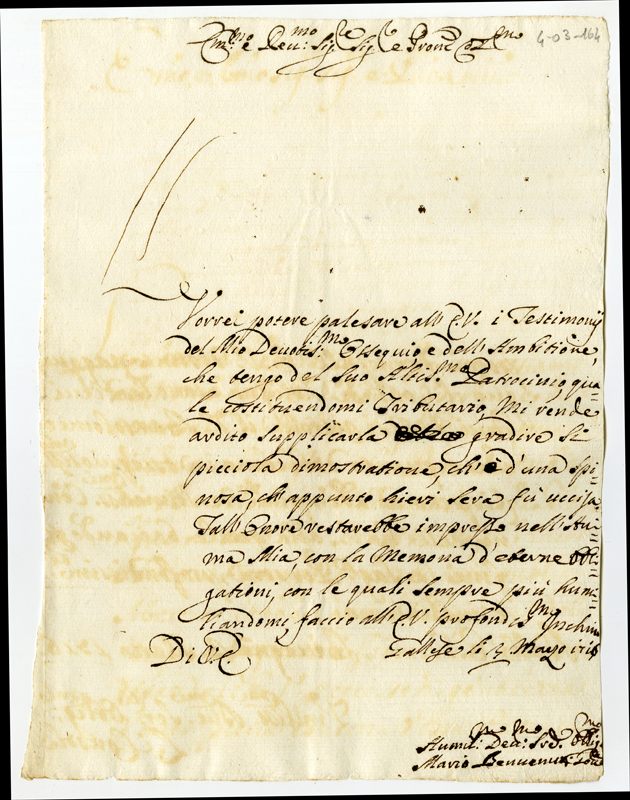 4-03-164
Em:mo e Rev:mo Sig.e Sig.e e Pron.e Col.mo
Vorrei potere palesare all'E.V. i Testimonij
del Mio Devotis:mo Ossequio, e dell'Ambitione,
che tengo del Suo Altis:mo Patrocinio, qua=
le costituendomi Tributario, Mi rende
ardito supplicarla gradire si
picciola dimostratione, ch'è d'una spi=
nosa, ch'appunto hieri sera fù uccisa.
Tall'Onore restarebbe impresso nell'Ani=
ma Mia, con la Memoria d'eterne obli=
gationi, con le quali sempre più humi=
liandomi, faccio all'E.V. profondis:mo Inchino
Di V.E. Gallese li 3 Mago 1716
Humil:mo Dev:mo Ser.e Oblig.mo
Mario Benvenuti